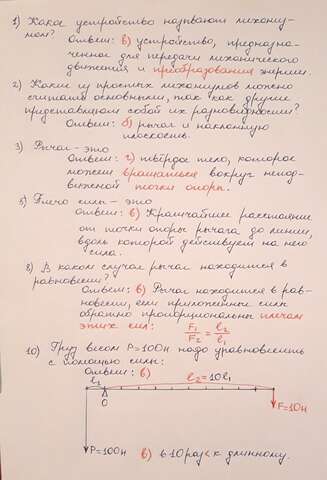 1) Какое устройство называют механиз-
мом?
Ответ: в) устройство, предназна-
ченное для передачи механического
движения и преобразования энергии.
2) Какие из простых механизмов можно
считать основными, так как другие
представляют собой их разновидности?
Ответ: б) рычаг и наклонную
плоскость.
3) Рычаг - это
Ответ: г) твёрдое тело, которое
может вращаться вокруг непод-
вижной точки опоры.
5) Плечо силы - это
Ответ: в) Кратчайшее расстояние
от точки опоры рычага до линии,
вдоль которой действует на него
сила.
8) В каком случае рычаг находится в
равновесии?
Ответ: в) Рычаг находится в рав-
новесии, если приложенные силы
обратно пропорциональны плечам
этих сил: F₁/F₂ = l₂/l₁
10) Груз весом P=100н надо уравновесить
с помощью силы:
Ответ: в)
l₁ l₂=10l₁
O
F=10н
P=100н в) в 10 раз к длинному.